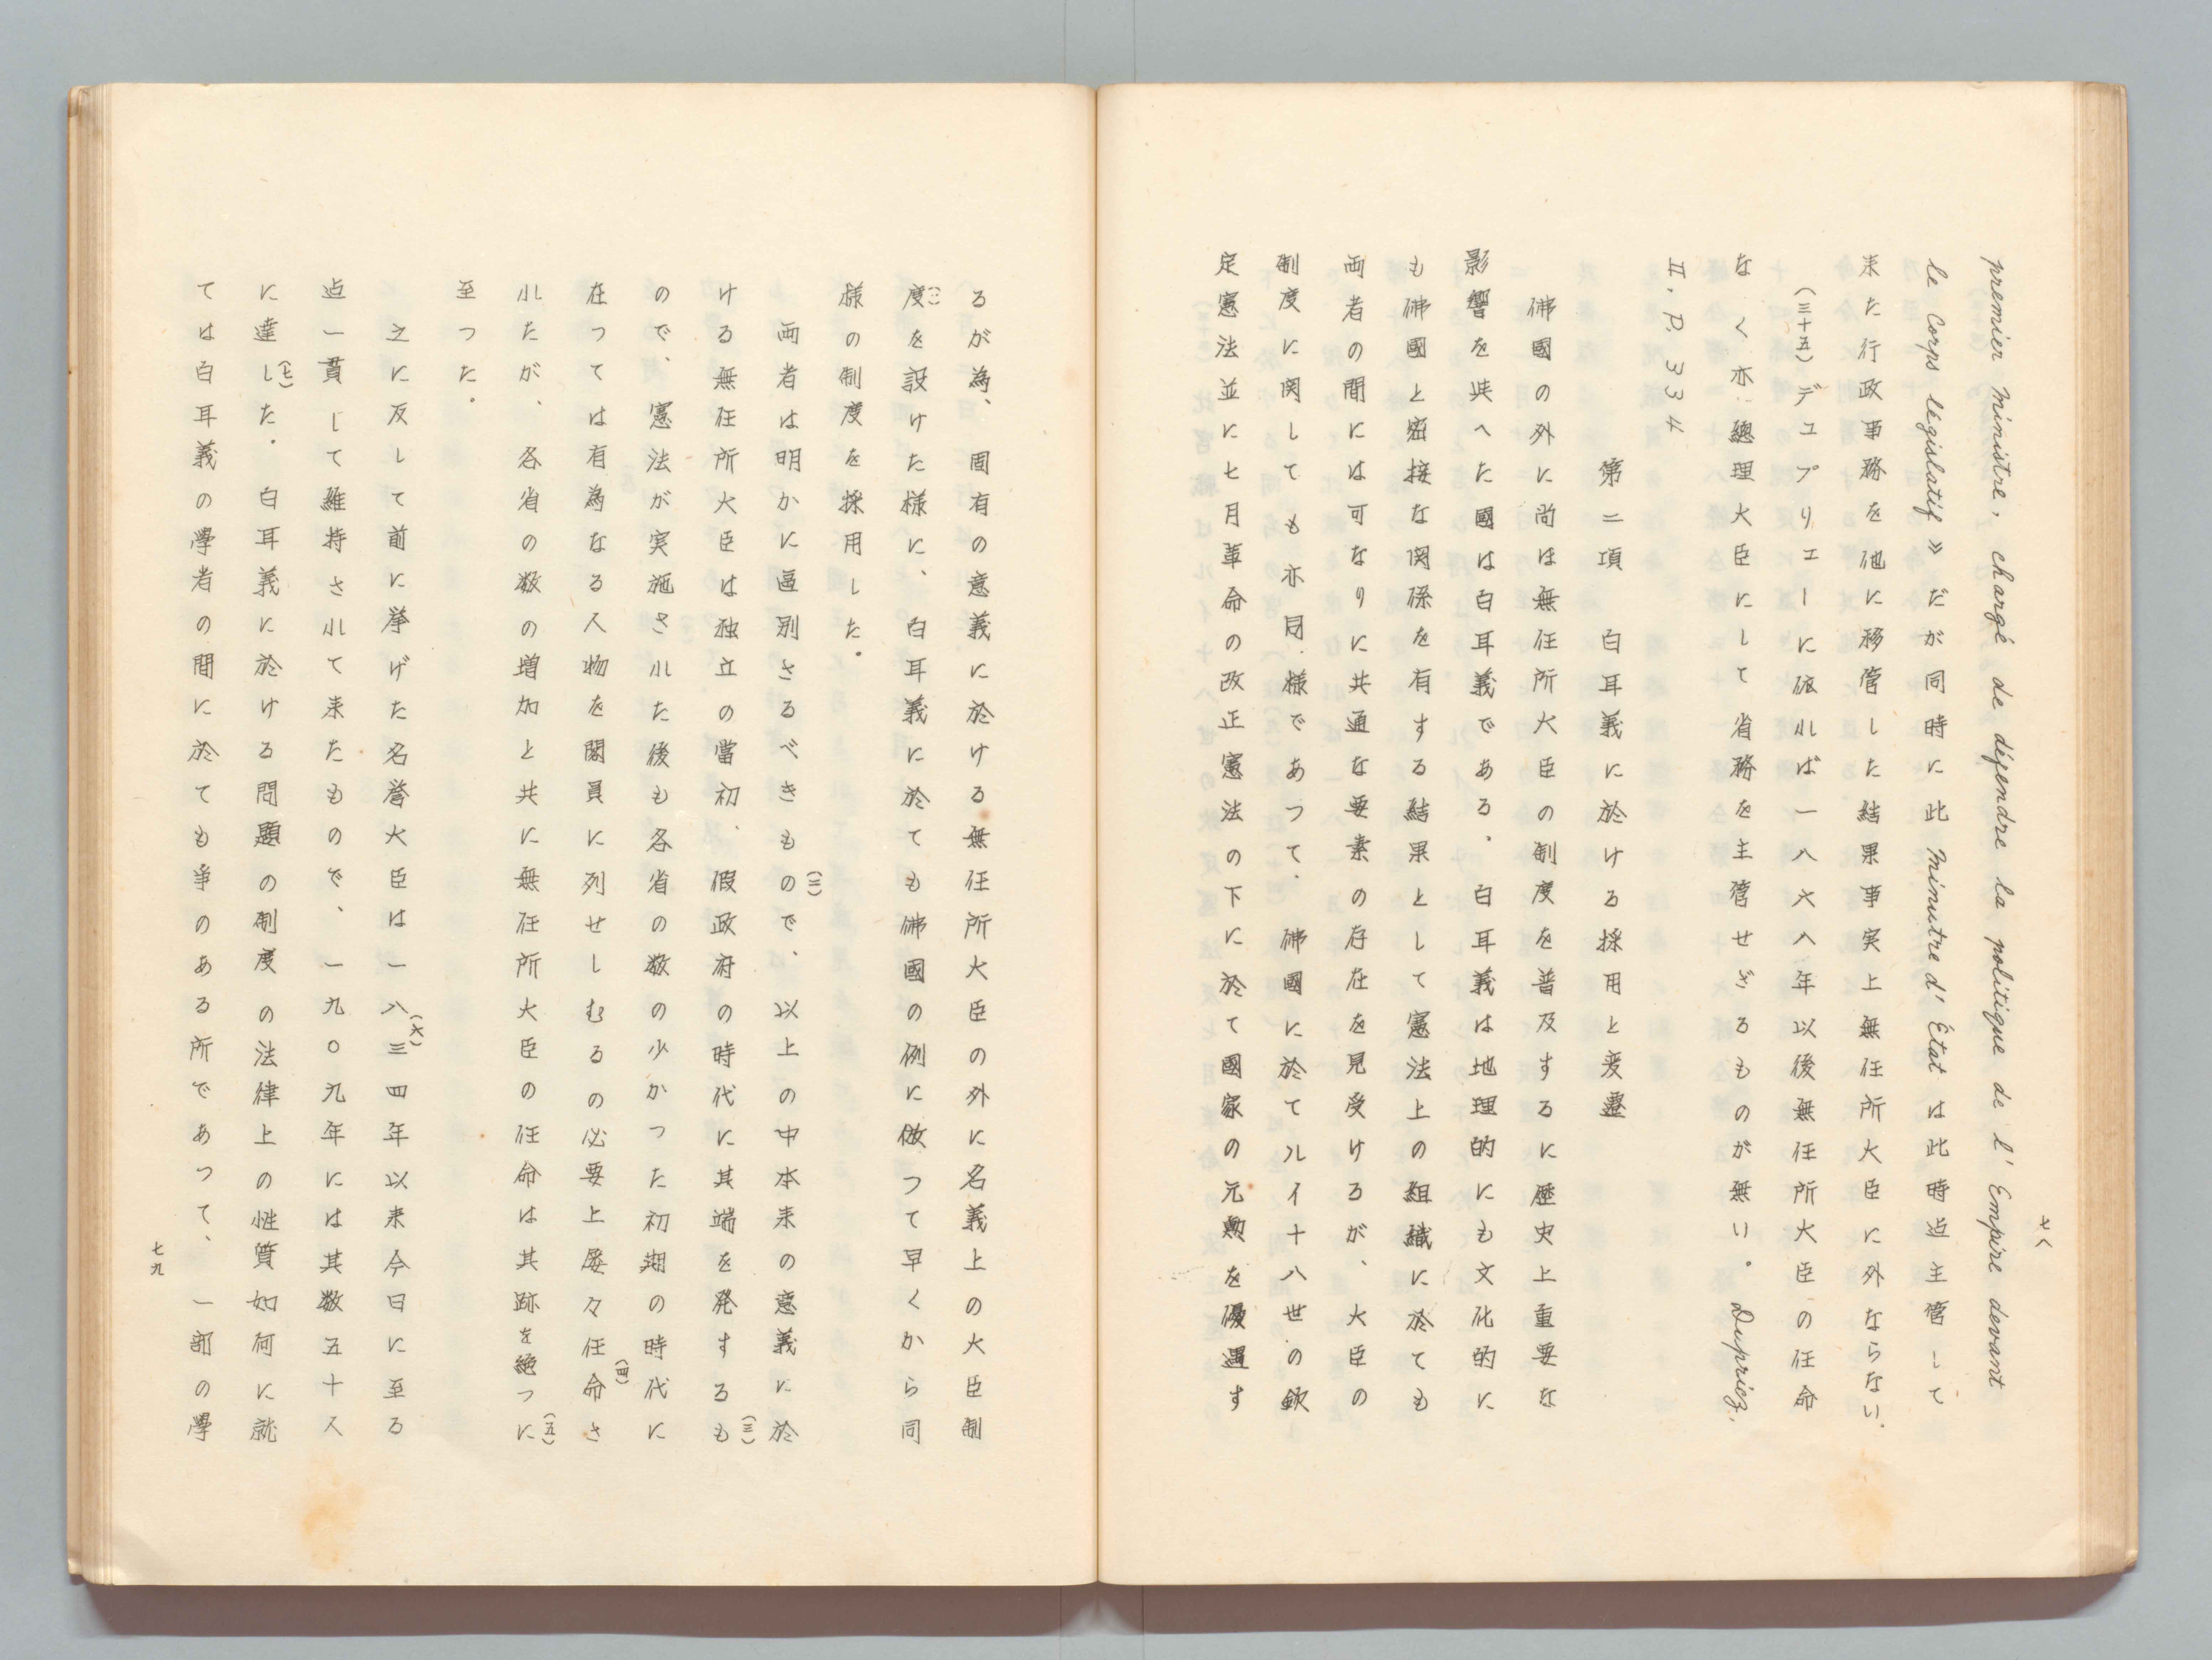 七八
premier ministre, chargé de défendre la politique de l'Empire devant
le corps législatif》だが同時に此 Ministre d'État は此時迠主管して
来た行政事務を他に移管した結果事実上無任所大臣に外ならない.
(三十五)デユプリエーに依れば一八六八年以後無任所大臣の任命
なく亦總理大臣にして省務を主管せざるものが無い。 Dupriez,
II. P. 334
第二項 白耳義に於ける採用と変遷
佛國の外に尚ほ無任所大臣の制度を普及するに歴史上重要な
影響を與へた國は白耳義である。白耳義は地理的にも文化的に
も佛國と密接な関係を有する結果として憲法上の組織に於ても
両者の間には可なりに共通な要素の存在を見受けるが、大臣の
制度に関しても亦同様であつて、佛國に於てルイ十八世の欽
定憲法並に七月革命の改正憲法の下に於て國家の元勲を優遇す
るが為、固有の意義に於ける無任所大臣の外に名義上の大臣制
度(一)を設けた様に、白耳義に於ても佛國の例に倣つて早くから同
様の制度を採用した。
両者は明かに區別さるべきもの(二)で、以上の中本来の意義に於
ける無任所大臣は独立の當初、假政府の時代に其端を発するも(三)
ので、憲法が実施された後も各省の数の少かつた初期の時代に
在つては有為なる人物を閣員に列せしむるの必要上屡々任命(四)さ
れたが、各省の数の増加と共に無任所大臣の任命は其跡を絶つに(五)
至つた。
之に反して前に挙げた名誉大臣は一八(六)三四年以来今日に至る
迠一貫して維持されて来たもので、一九〇九年には其数五十人
に達し(七)た。白耳義に於ける問題の制度の法律上の性質如何に就
ては白耳義の學者の間に於ても争のある所であつて、一部の學
七九